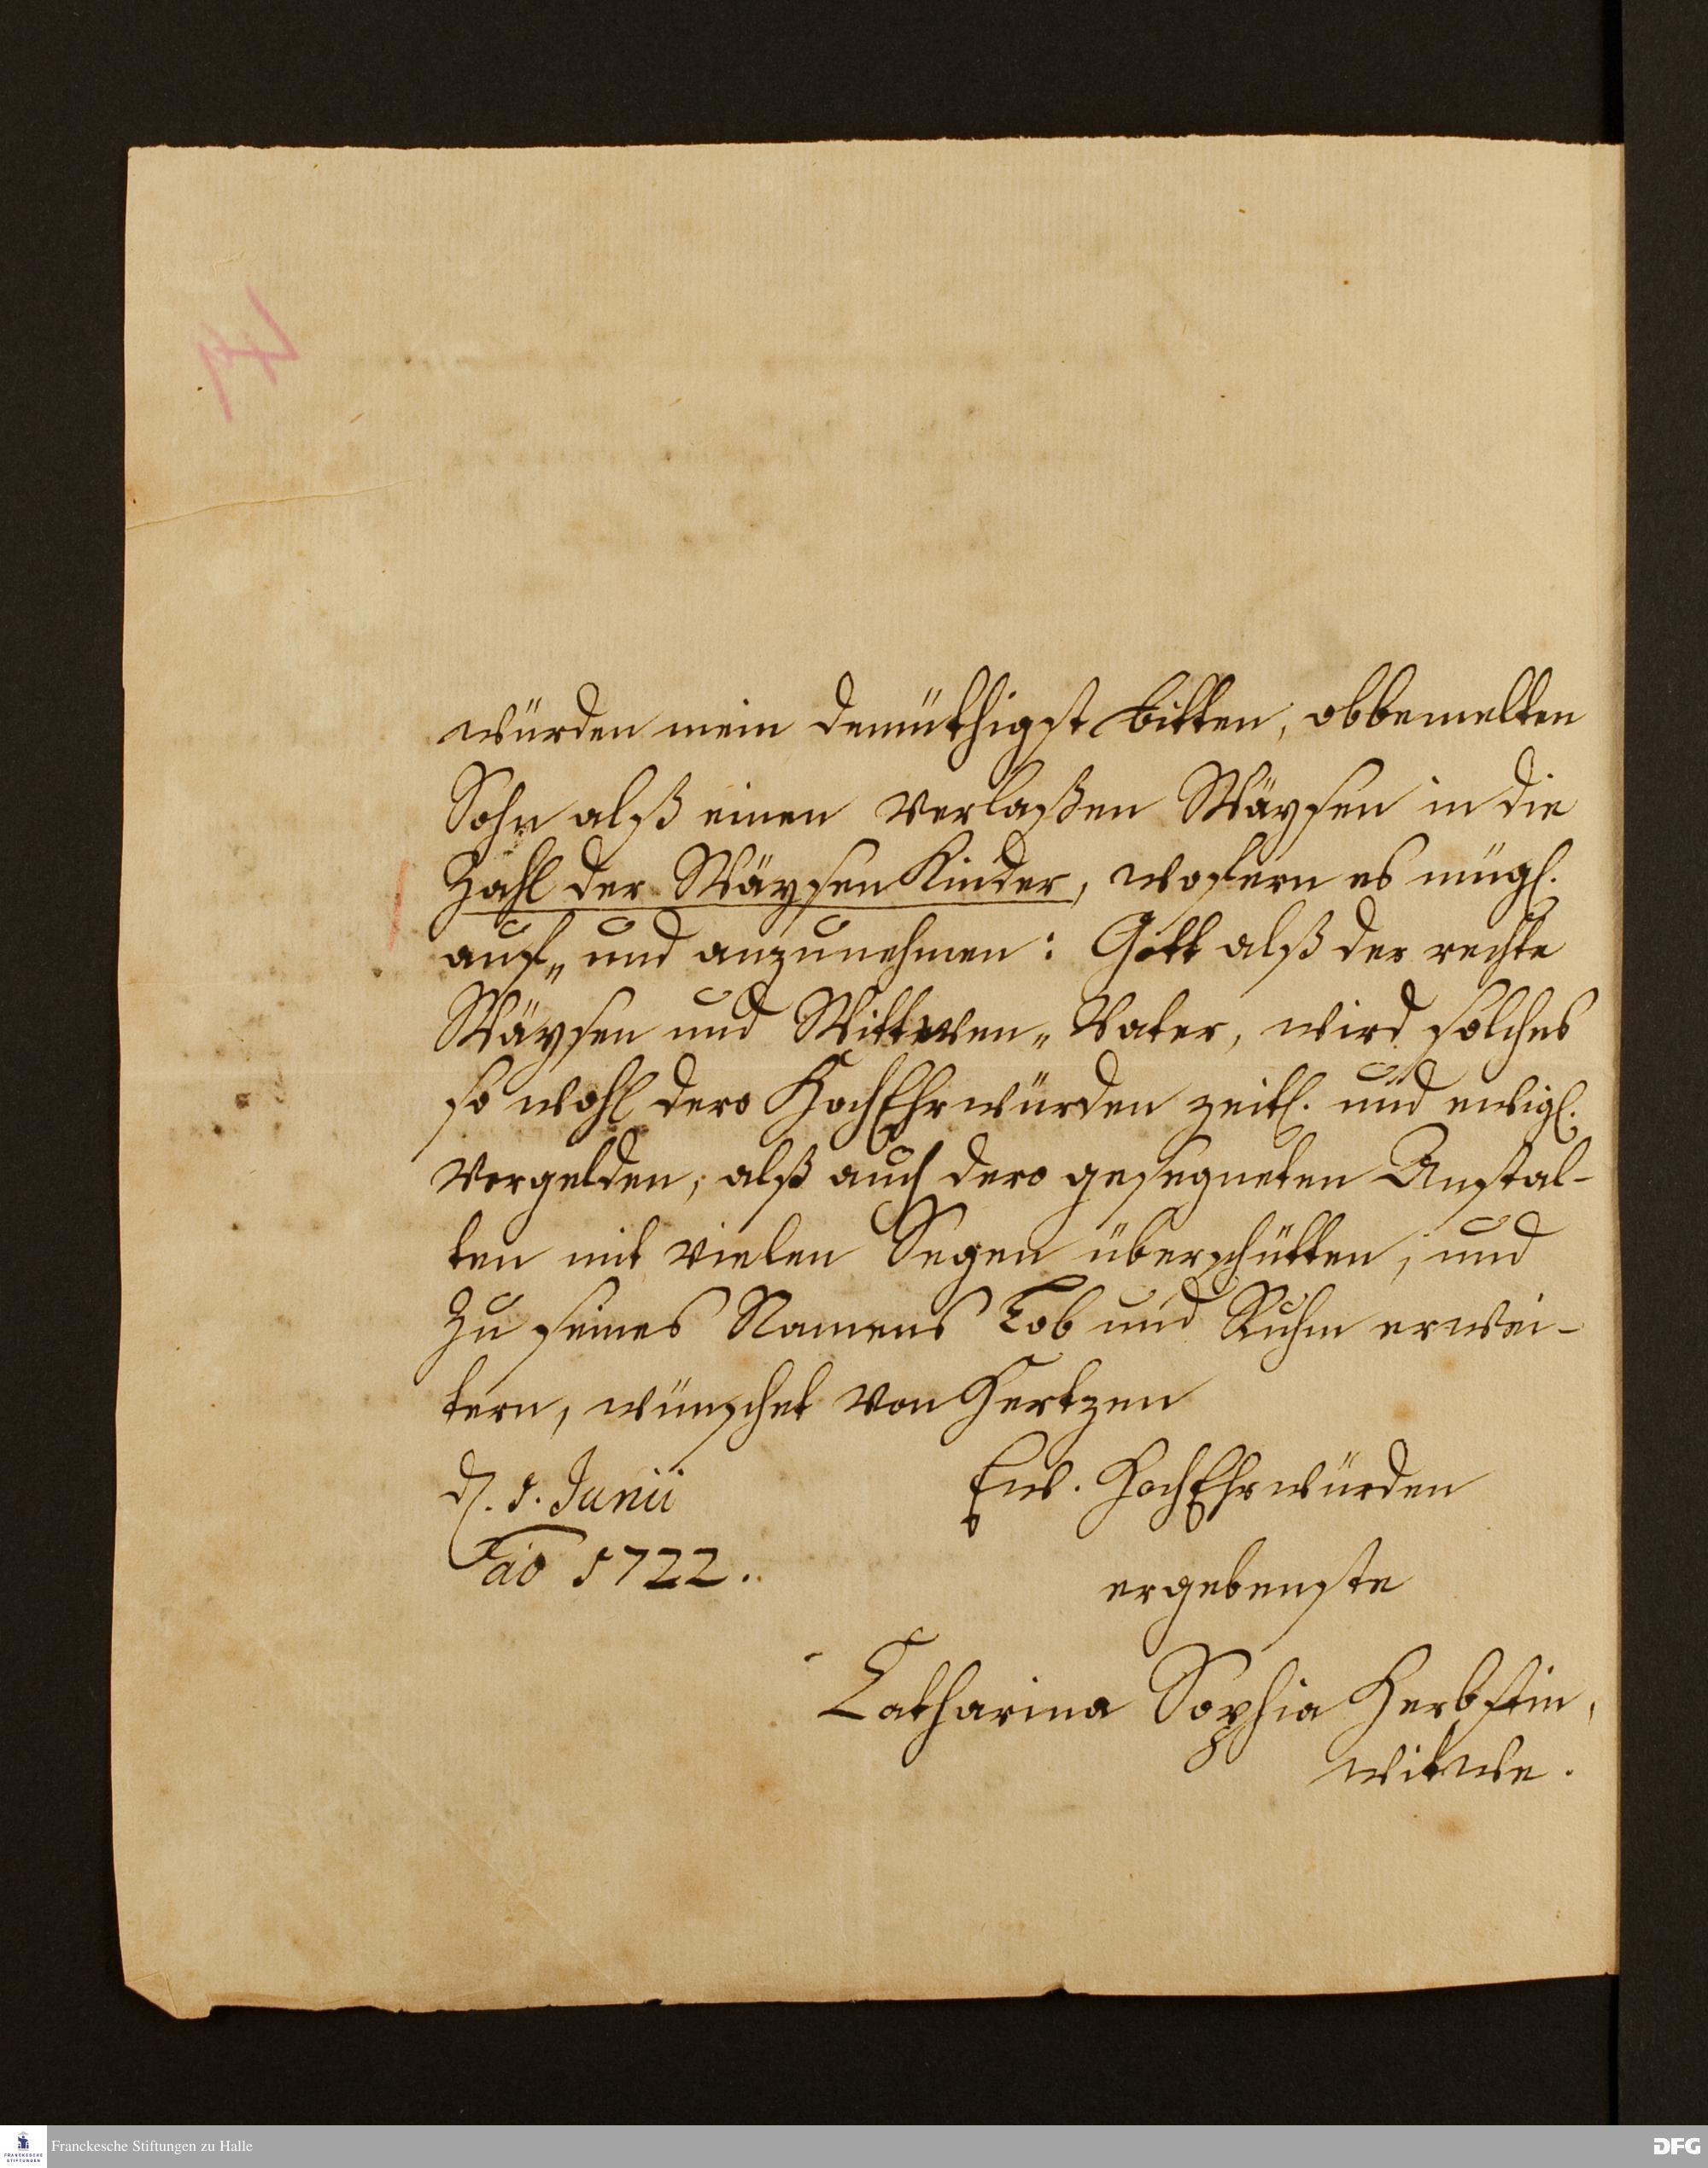 würden mein demüthigst bitten, obbemelten
Sohn alß einen verlaßen Wäysen in die
Zahl der Wäysen Kinder, wofern es mügl.
auf„ und anzunehmen: Gott alß der rechte
Wäysen und Wittwen„ Vater, wird solches
so wohl dero HochEhrwürden zeitl. und ewigl.
vergelden, alß auch dero gesegneten Anstal-
ten mit vielen Segen überschütten, und
zu seines Namens Lob und Ruhm erwei-
tern, wünschet von Hertzen
d. 1. Junii
ao 1722.
Ew. HochEhrwürden
ergebenste
Catharina Sophia Herbstin,
witwe.
Franckesche Stiftungen zu Halle
DFG